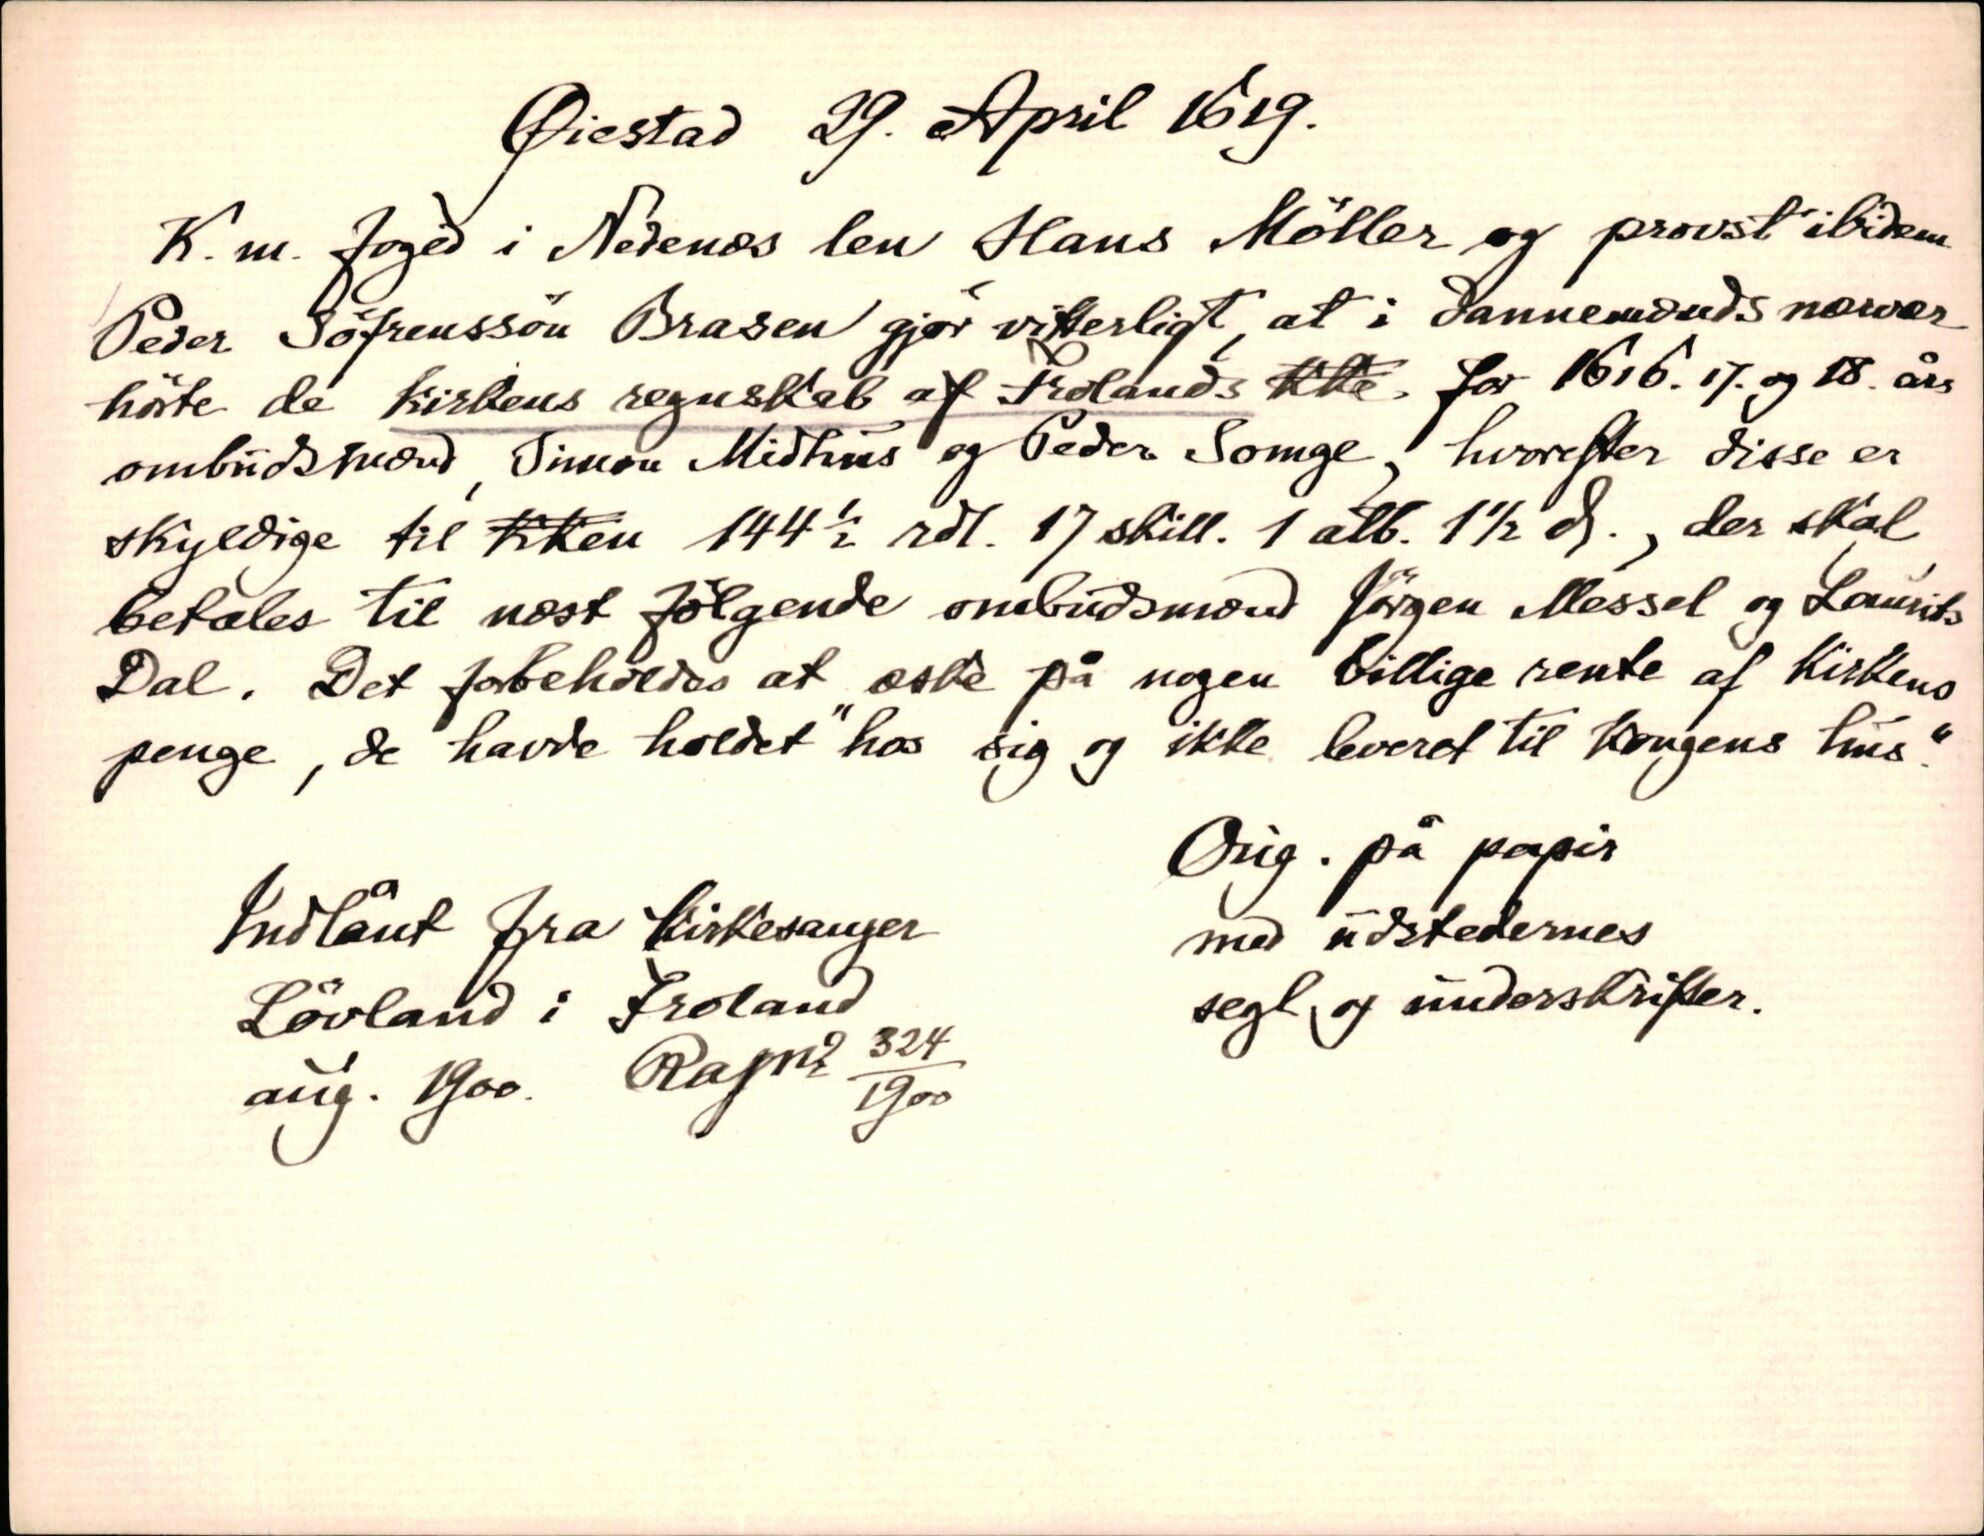 Øiestad 29. April 1619.
K. m. foged i Nedenæs len Hans Möller og provst ibidem
Peder Söfrenssön Brasen gjör vitterligt, at i dannemænds nærvær
hörte de kirkens regnskab af Frolands kke. for 1616. 17. og 18. års
ombudsmænd, Simon Midhus og Peder Somge, hvorefter disse er
skyldige til kken 144½ rdl. 17 skill. 1 alb. 1½ ₰., der skal
betales til næst fölgende ombudsmænd Jörgen Messel og Laurits
Dal. Det forbeholdes at æske på nogen billige rente af kirkens
penge, de havde holdet "hos sig og ikke leveret til kongens hus."
Orig. på papir
med udstedernes
segl og underskrifter.
Indlånt fra kirkesanger
Lövland i Froland
aug. 1900. RA jnr 324/1900